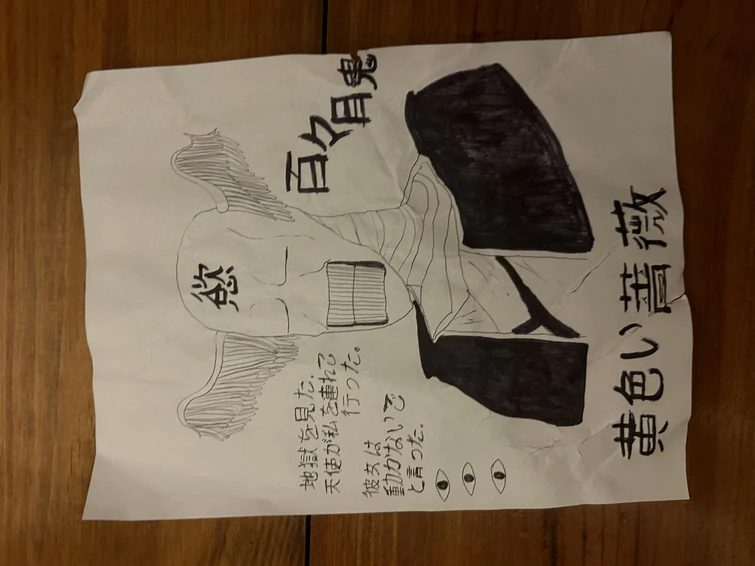 慾
地獄を見た。
天使が私を連れて
行った。
彼女は
動かないで
と言った。
百々目鬼
黄色い薔薇